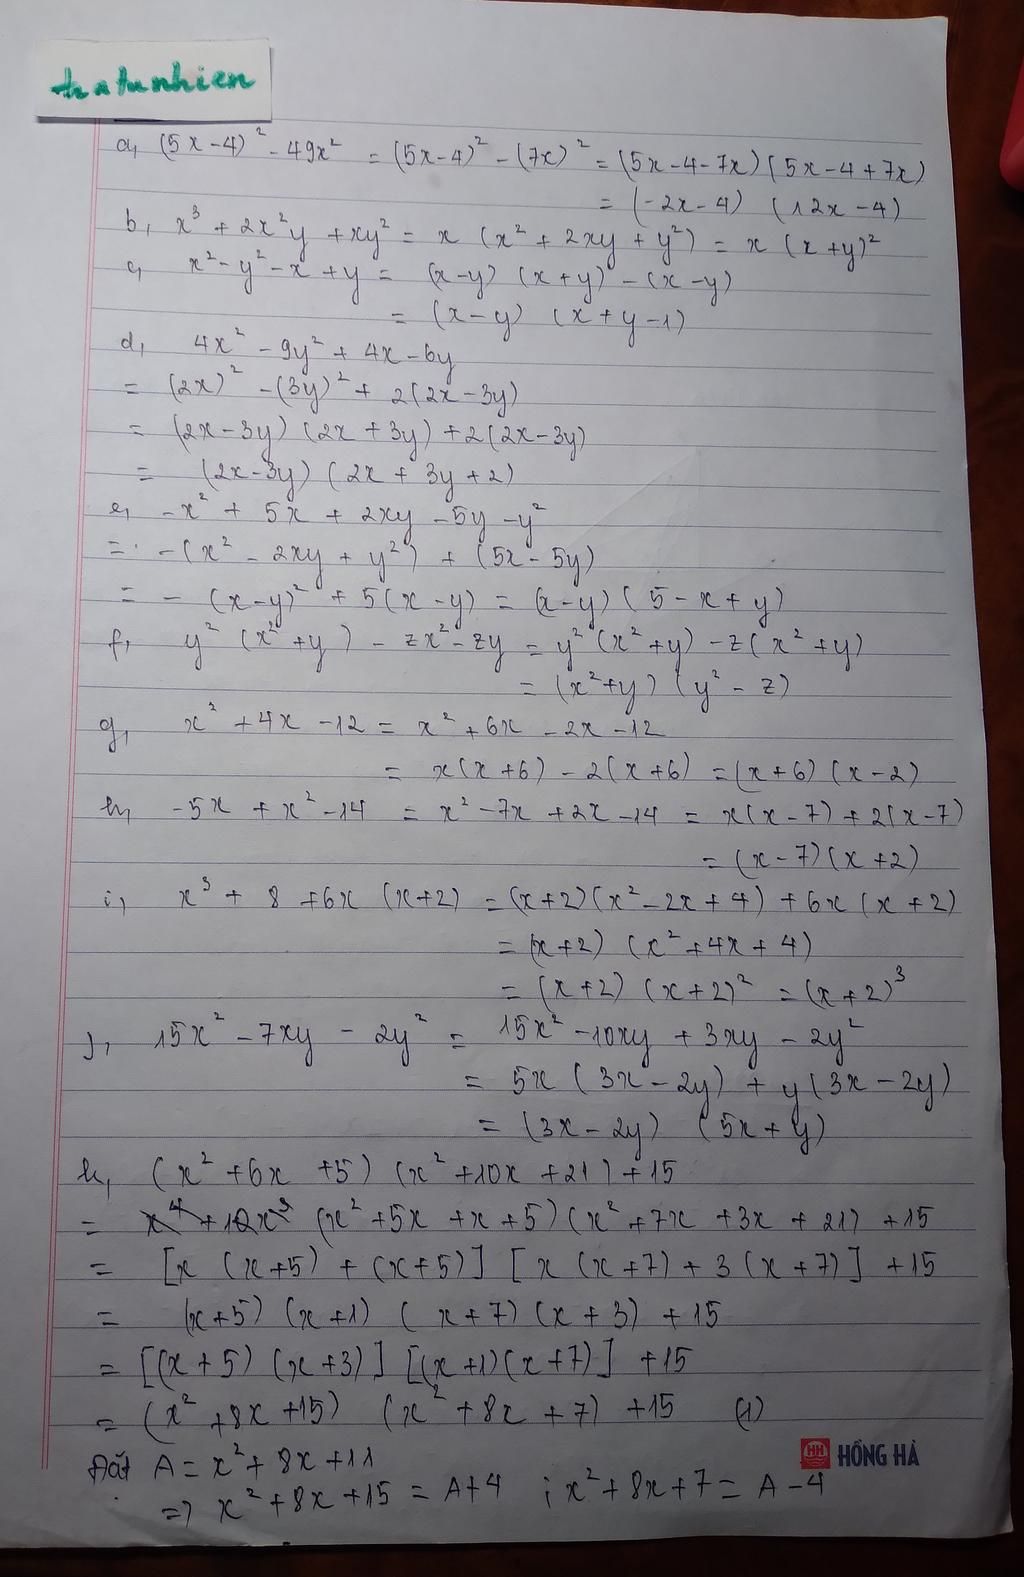 tratunhien
a, (5x-4)² - 49x² = (5x-4)² - (7x)² = (5x-4-7x)(5x-4+7x)
= (-2x-4) (12x-4)
b, x³ + 2x²y + xy² = x (x² + 2xy + y²) = x (x+y)²
c, x² - y² - x + y = (x-y) (x+y) - (x-y)
= (x-y) (x+y-1)
d, 4x² - 9y² + 4x - 6y
= (2x)² - (3y)² + 2(2x-3y)
= (2x-3y) (2x+3y) + 2(2x-3y)
= (2x-3y) (2x + 3y + 2)
e, -x² + 5x + 2xy - 5y - y²
= -(x² - 2xy + y²) + (5x - 5y)
= - (x-y)² + 5(x-y) = (x-y) (5-x+y)
f, y² (x²+y) - zx² - zy = y² (x²+y) - z(x²+y)
= (x²+y) (y² - z)
g, x² + 4x - 12 = x² + 6x - 2x - 12
= x(x+6) - 2(x+6) = (x+6) (x-2)
h, -5x + x² - 14 = x² - 7x + 2x - 14 = x(x-7) + 2(x-7)
= (x-7)(x+2)
i, x³ + 8 + 6x (x+2) = (x+2)(x² - 2x + 4) + 6x (x+2)
= (x+2) (x² + 4x + 4)
= (x+2) (x+2)² = (x+2)³
j, 15x² - 7xy - 2y² = 15x² - 10xy + 3xy - 2y²
= 5x (3x-2y) + y(3x-2y)
= (3x-2y) (5x+y)
k, (x² + 6x + 5) (x² + 10x + 21) + 15
= (x² + 5x + x + 5) (x² + 7x + 3x + 21) + 15
= [x (x+5) + (x+5)] [x (x+7) + 3 (x+7)] + 15
= (x+5) (x+1) (x+7) (x+3) + 15
= [(x+5) (x+3)] [(x+1)(x+7)] + 15
= (x² + 8x + 15) (x² + 8x + 7) + 15 (1)
HH HỒNG HÀ
Đặt A = x² + 8x + 11
=> x² + 8x + 15 = A+4 ; x² + 8x + 7 = A - 4